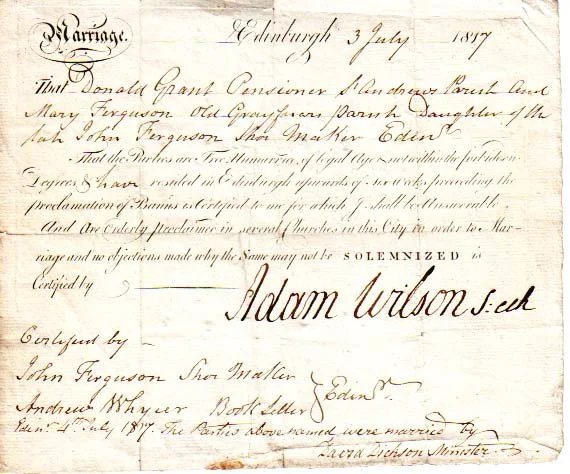 Marriage. Edinburgh 3 July 1817
That Donald Grant Pensioner St Andrews Parish And
Mary Ferguson Old Grayfriars parish Daughter of the
late John Ferguson Shoe Maker Edenr.
That the Parties are Free Unmarried, of legal Age & not within the forbidden
Degrees & have resided in Edinburgh upwards of six weeks preceeding the
proclamation of Banns is Certified to me for which I shall be Answerable
And Are Orderly proclaimed in several Churches in this City in order to Mar-
riage and no objections made why the Same may not be SOLEMNIZED is
Certified by
Adam Wilson S: Clk
Certified by
John Ferguson Shoe Maker
Andrew Book Seller Edenr.
Edenr. 4th July 1817. The Parties above named were married by
David Dickson Minister